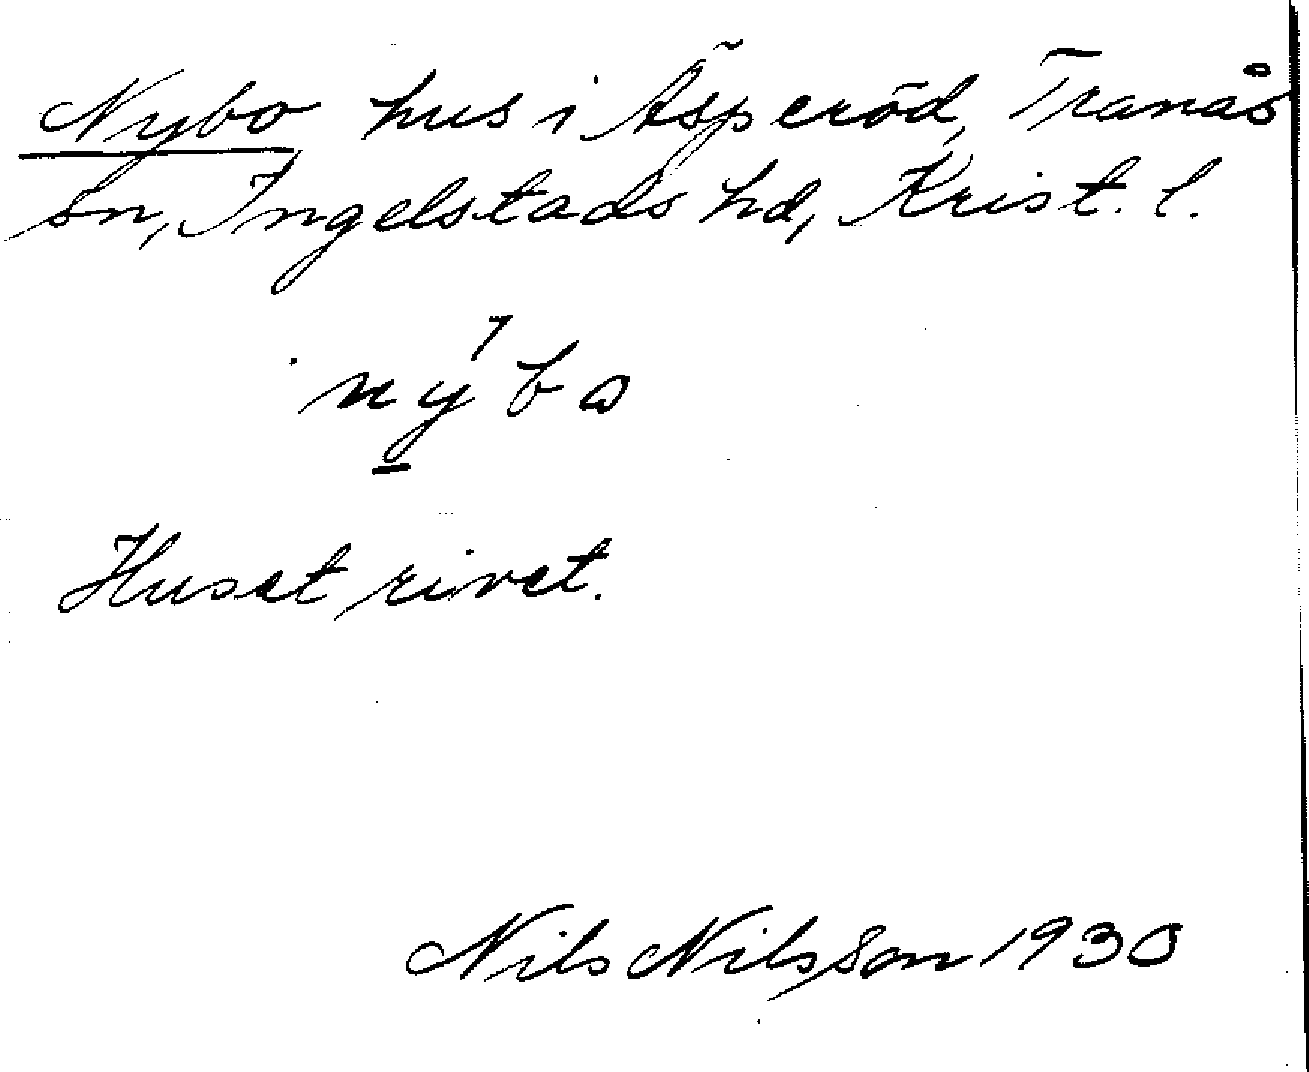 Nybo hus i Äsperöd, Tranås
sn, Ingelstads hd, Krist. l.
nýbo
Huset rivet.
Nils Nilsson 1930